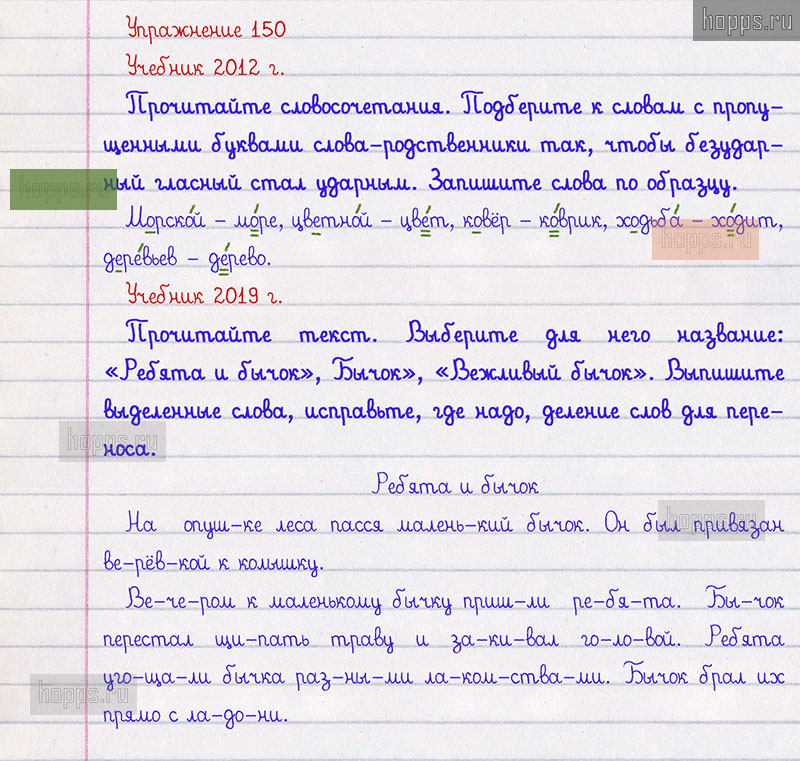 hopps.ru
Упражнение 150
Учебник 2012 г.
Прочитайте словосочетания. Подберите к словам с пропу-
щенными буквами слова-родственники так, чтобы безудар-
ный гласный стал ударным. Запишите слова по образцу.
hopps.ru
Морско́й – мо́ре, цветно́й – цве́т, ковёр – ко́врик, ходьба́ – хо́дит,
hopps.ru
дере́вьев – де́рево.
Учебник 2019 г.
Прочитайте текст. Выберите для него название:
«Ребята и бычок», Бычок», «Вежливый бычок». Выпишите
выделенные слова, исправьте, где надо, деление слов для пере-
hopps.ru
носа.
Ребята и бычок
На опуш-ке леса пасся малень-кий бычок. Он был привязан
hopps.ru
ве-рёв-кой к колышку.
Ве-че-ром к маленькому бычку приш-ли ре-бя-та. Бы-чок
перестал щи-пать траву и за-ки-вал го-ло-вой. Ребята
уго-ща-ли бычка раз-ны-ми ла-ком-ства-ми. Бычок брал их
hopps.ru
прямо с ла-до-ни.